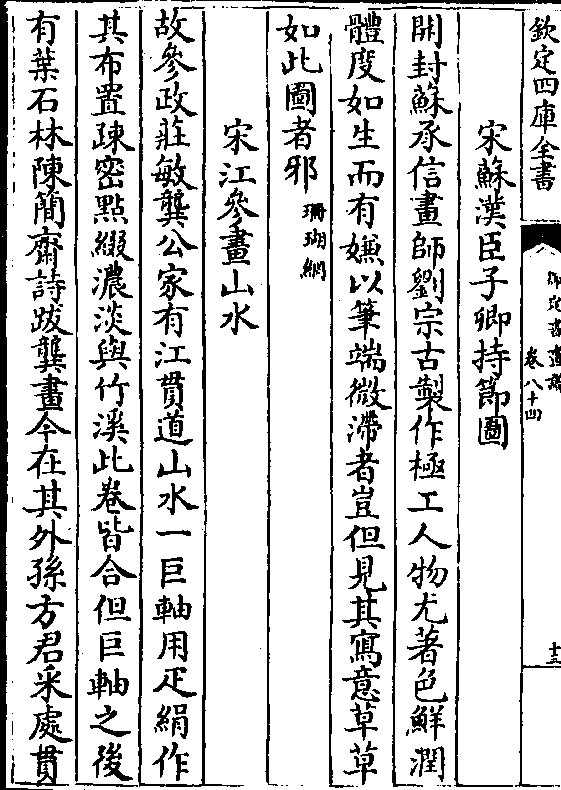 欽定四庫全書
御定書畫譜
卷八十四
十三
宋蘇漢臣子卿持節圖
開封蘇承信畫師劉宗古製作極工人物尤著色鮮潤
體度如生而有嫌以筆端微滯者豈但見其寫意草草
如此圖者邪 珊瑚網
宋江參畫山水
故參政莊敏龔公家有江貫道山水一巨軸用疋絹作
其布置疎密點綴濃淡與竹溪此卷皆合但巨軸之後
有葉石林陳簡齋詩跋龔畫今在其外孫方君采處貫